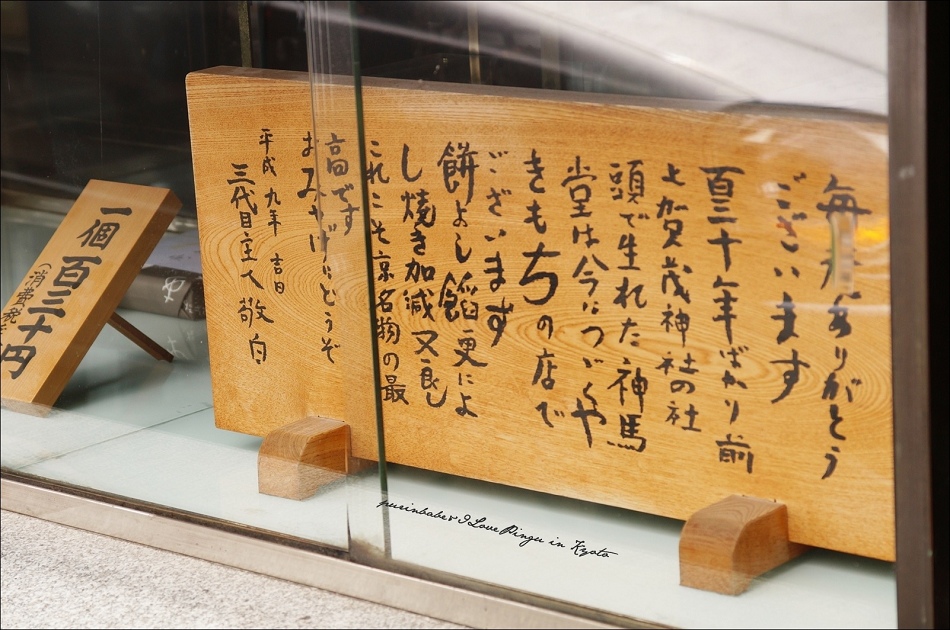 毎度ありがとう
ございます
百三十年ばかり前
上賀茂神社の社
頭で生れた神馬
堂は今につづくや
きもちの店で
ございます
餅よし餡更によ
し焼き加減又良し
これこそ京名物の最
高です
おみやげにどうぞ
平成九年吉日
三代目主人敬白
一個百三十円
(消費
purinbabe's I Love Pingu in Kyoto